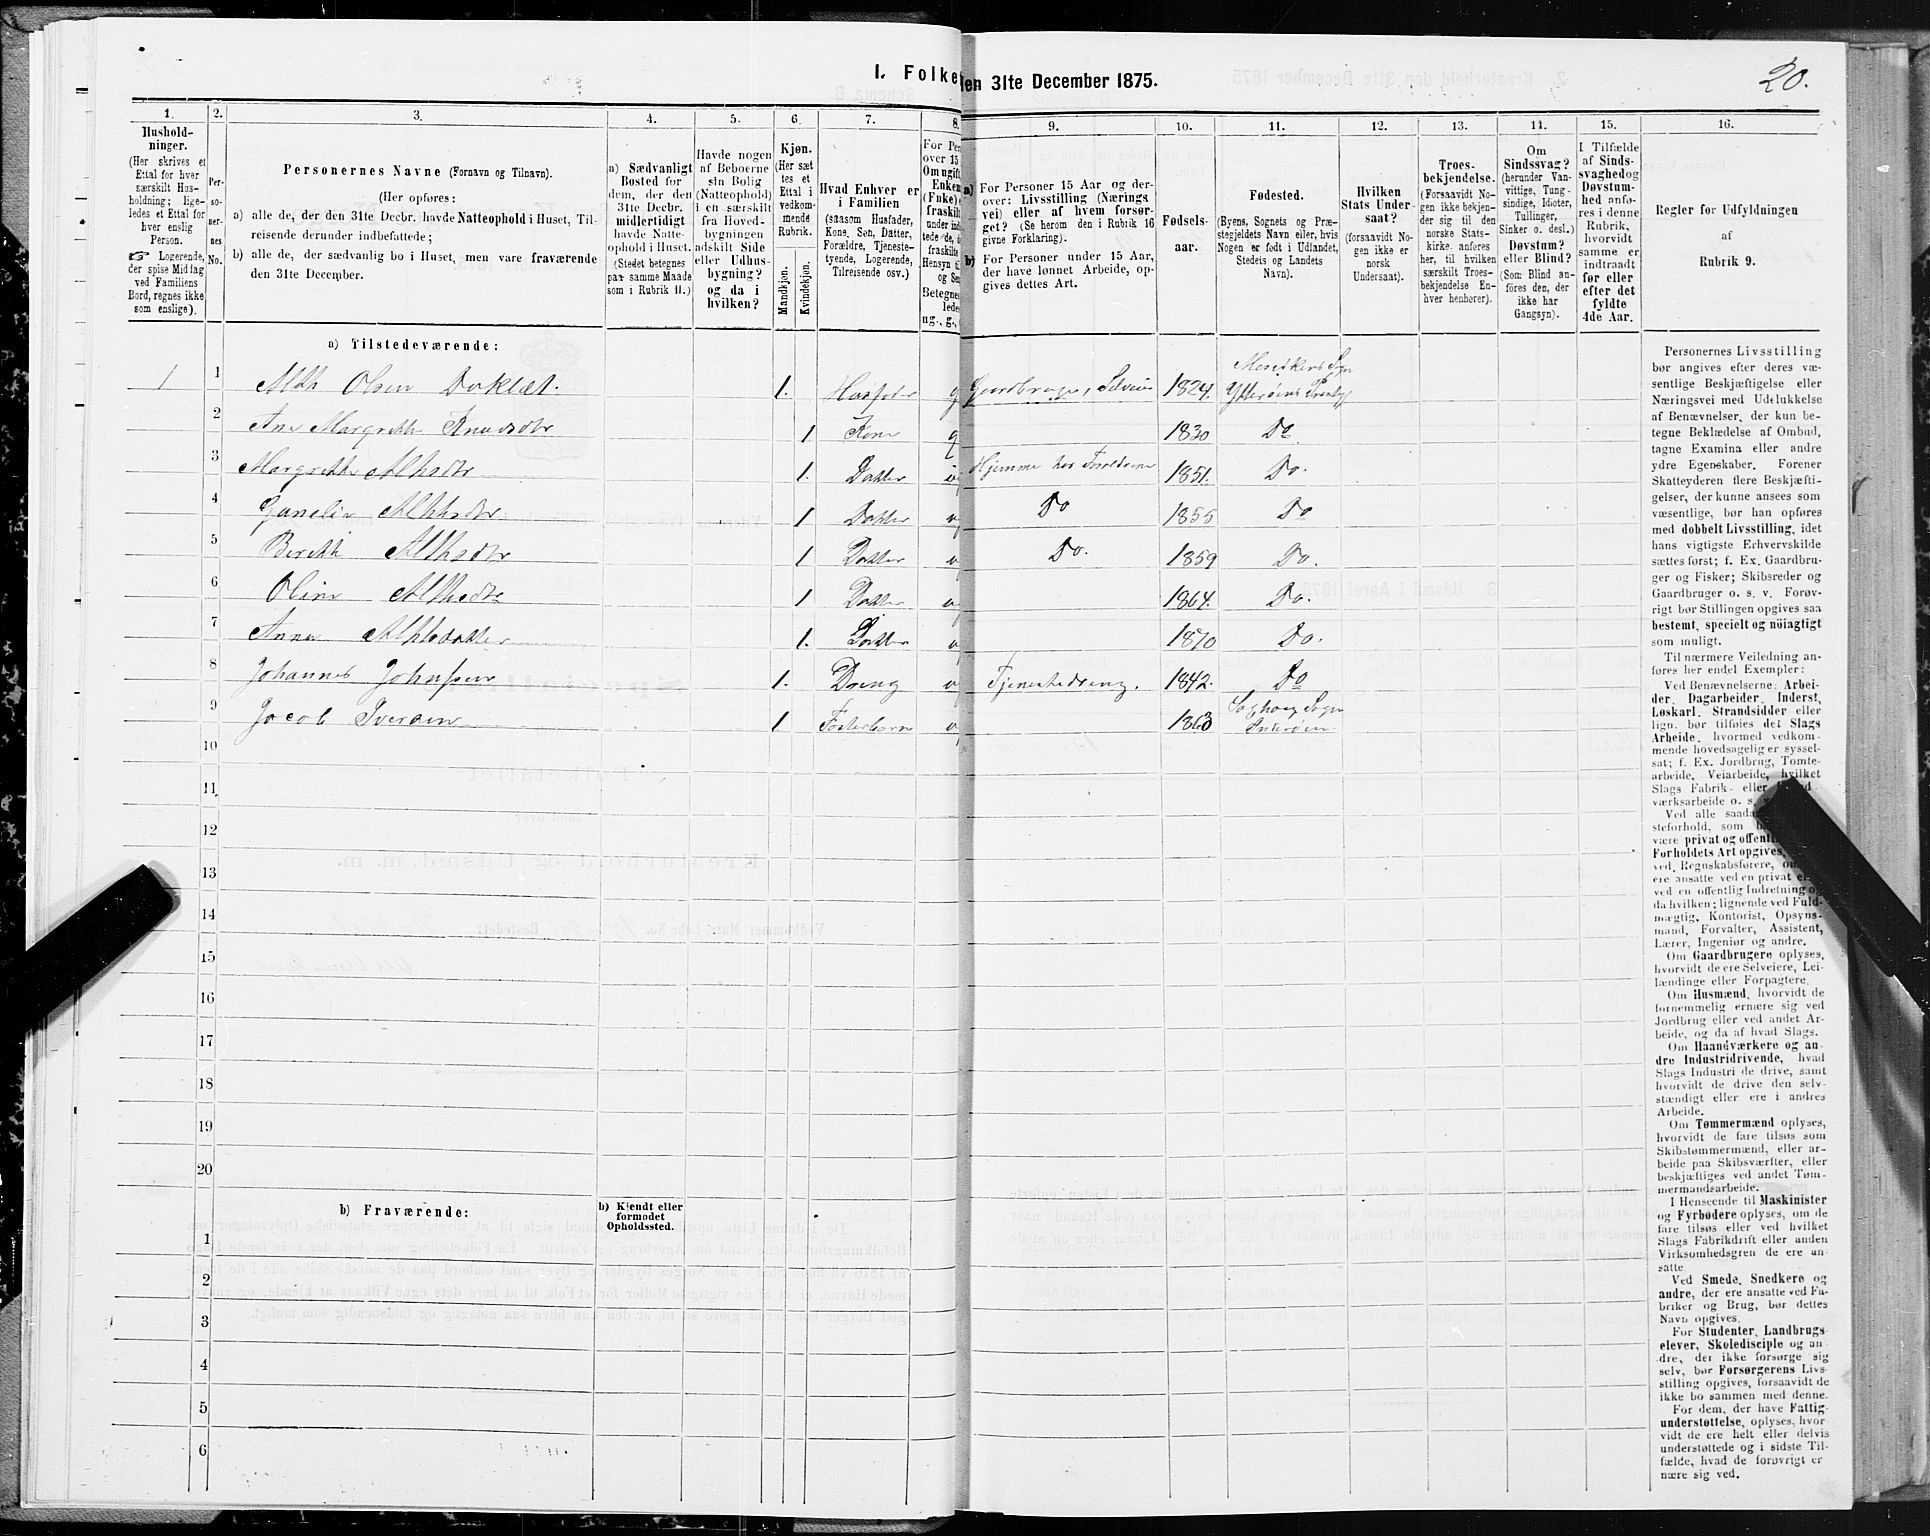 20.
I. Folke
den 31te December 1875.
1. 2. 3. 4. 5. 6. 7. 8. 9. 10. 11. 12. 13. 14. 15. 16.
Hushold-
ninger.
(Her skrives et
Ettal for hver
særskilt Hus-
holdning; lige-
ledes et Ettal for
hver enslig
Person.
☞ Logerende,
der spise Middag
ved Familiens
Bord, regnes ikke
som enslige).
Per-
so-
ner-
nes
No.
Personernes Navne (Fornavn og Tilnavn).
(Her opføres:
a) alle de, der den 31te Decbr. havde Natteophold i Huset, Til-
reisende derunder indbefattede;
b) alle de, der sædvanlig bo i Huset, men vare fraværende
den 31te December.
a) Sædvanligt
Bosted for
dem, der den
31te Decbr.
midlertidigt
havde Natte-
ophold i Huset.
(Stedet betegnes
paa samme Maade
som i Rubrik 11.)
Havde nogen
af Beboerne
sin Bolig
(Natteophold)
i en særskilt
fra Hoved-
bygningen
adskilt Side
eller Udhus-
bygning?
og da i
hvilken?
Kjøn.
(Her sæt
tes et
Ettal i
vedkom-
mende
Rubrik.
Mandkjøn.
Kvindekjøn.
Hvad Enhver er
i Familien
(saasom Husfader,
Kone, Søn, Datter,
Forældre, Tjeneste-
tyende, Logerende,
Tilreisende osv.)
For Per
over 15
Om ugift
Enken
(Fnke)
fraskilt
under ind
tede
fraskilte
Hensyn
og Se
Betegnes
lede
ug., g.,
a) For Personer 15 Aar og der-
over: Livsstilling (Nærings
vei) eller af hvem forsør-
get? (Se herom den i Rubrik 16
givne Forklaring).
b) For Personer under 15 Aar,
der have lønnet Arbeide, op-
gives dettes Art.
Fødsels-
aar.
Fødested.
(Byens, Sognets og Præ-
stegjeldets Navn eller, hvis
Nogen er født i Udlandet,
Stedeis og Landets
Navn).
Hvilken
Stats Under-
saat?
(forsaavidt No-
gen ikke er
norsk
Undersaat).
Troes-
bekjendelse.
(Forsaavidt No-
gen ikke bekjen-
der sig til den
norske Stats-
kirke, anføres
her, til hvilken
særskilt Troes-
bekjendelse En-
hver henhører).
Om
Sindssvag?
(herunder Van-
vittige, Tung-
sindige, Idioter,
Tullinger,
Sinker o. desl.)
Døvstum?
eller Blind?
(Som Blind an-
føres den, der
ikke har
Gangsyn).
I Tilfælde
af Sinds-
svaghed og
Døvstum-
hed anfø-
res i denne
Rubrik,
hvorvidt
samme er
indtraadt
før eller
efter det
fyldte
4de Aar.
Regler for Udfyldningen
af
Rubrik 9.
a) Tilstedeværende:
1 1 Olsen 1. g Gaardbruger, Selveier 1824.
2 Ane Margrethe Knudsdtr 1 Kone g 1830 Do
3 Margrethe 1. Datter Hjemme hos Forældrene 1851. Do.
4 1 Datter Do 1855 Do
5 1 Datter Do. 1859 Do.
6 1 Datter 1864. Do.
7 Anna 1. Datter 1870 Do.
8 Johannes Johnsen 1. Dreng Tjenestedreng. 1842. Do
9 Jacob Iversen 1 Fosterbarn 1863 Sogn
10
11
12
13
14
15
16
17
18
19
20
b) Fraværende:
b) Kjendt eller
formodet
Opholdssted.
1
2
3
4
5
6
Personernes Livsstilling
bør angives efter deres væ-
sentlige Beskjæftigelse eller
Næringsvei med Udelukkelse
af Benævnelser, der kun be-
tegne Beklædelse af Ombud,
tagne Examina eller andre
ydre Egenskaber. Forener
Skatteyderen flere Beskjæfti-
gelser, der kunne ansees som
væsentlige, bør han opføres
med dobbelt Livsstilling, idet
hans vigtigste Erhvervskilde
sættes først; f. Ex. Gaardbru-
ger og Fisker; Skibsreder og
Gaardbruger o. s. v. Forøv-
rigt bør Stillingen opgives saa
bestemt, specielt og nöiagtigt
som muligt.
Til nærmere Veiledning an-
føres her endel Exempler:
Ved Benævnelserne: Arbei-
der, Dagarbeider, Inderst,
Løskarl, Strandsidder eller
lign. bør tilføies det Slags
Arbeide, hvormed vedkom-
mende hovedsagelig er syssel-
sat; f. Ex. Jordbrug, Tomte-
arbeide, Veiarbeide, hvilket
Slags Fabrik- eller
værksarbeide o. s.
Ved alle saada
steforhold, som
være privat og offent
Forholdets Art opgives,
ved Regnskabsførere,
ere ansatte ved en privat
ved en offentlig Indretning og
da hvilken; lignende ved Fuld-
mægtig, Kontorist, Opsyns-
mand, Forvalter, Assistent,
Lærer, Ingeniør og andre.
Om Gaardbrugere oplyses,
hvorvidt de ere Selveiere, Lei-
lændinge eller Forpagtere.
Om Husmænd, hvorvidt de
fornemmelig ernære sig ved
Jordbrug eller ved andet Ar-
beide, og da af hvad Slags.
Om Haandværkere og an-
dre Industridrivende, hvad
Slags Industri de drive, samt
hvorvidt de drive den selv-
stændigt eller ere i andres
Arbeide.
Om Tømmermænd oplyses,
hvorvidt de fare tilsøs som
Skibstømmermænd, eller ar-
beide paa Skibsværfter, eller
beskjæftiges ved andet Tøm-
mermandsarbeide.
I Henseende til Maskinister
og Fyrbødere oplyses, om de
fare tilsøs eller ved hvilket
Slags Fabrikdrift eller anden
Virksomhedsgren de ere an-
satte
Ved Smede, Snedkere og
andre, der ere ansatte ved Fa-
briker og Brug, bør dettes
Navn opgives.
For Studenter, Landbrugs-
elever, Skoledisciple og an-
dre, der ikke forsørge sig
selv, bør Forsørgerens Livs-
stilling opgives, forsaavidt de
ikke bo sammen med denne.
For dem, der have Fattig-
understøttelse, oplyses, hvor-
vidt de ere helt eller delvis
understøttede og i sidste Til-
fælde, hvad de forøvrigt er
nære sig ved.